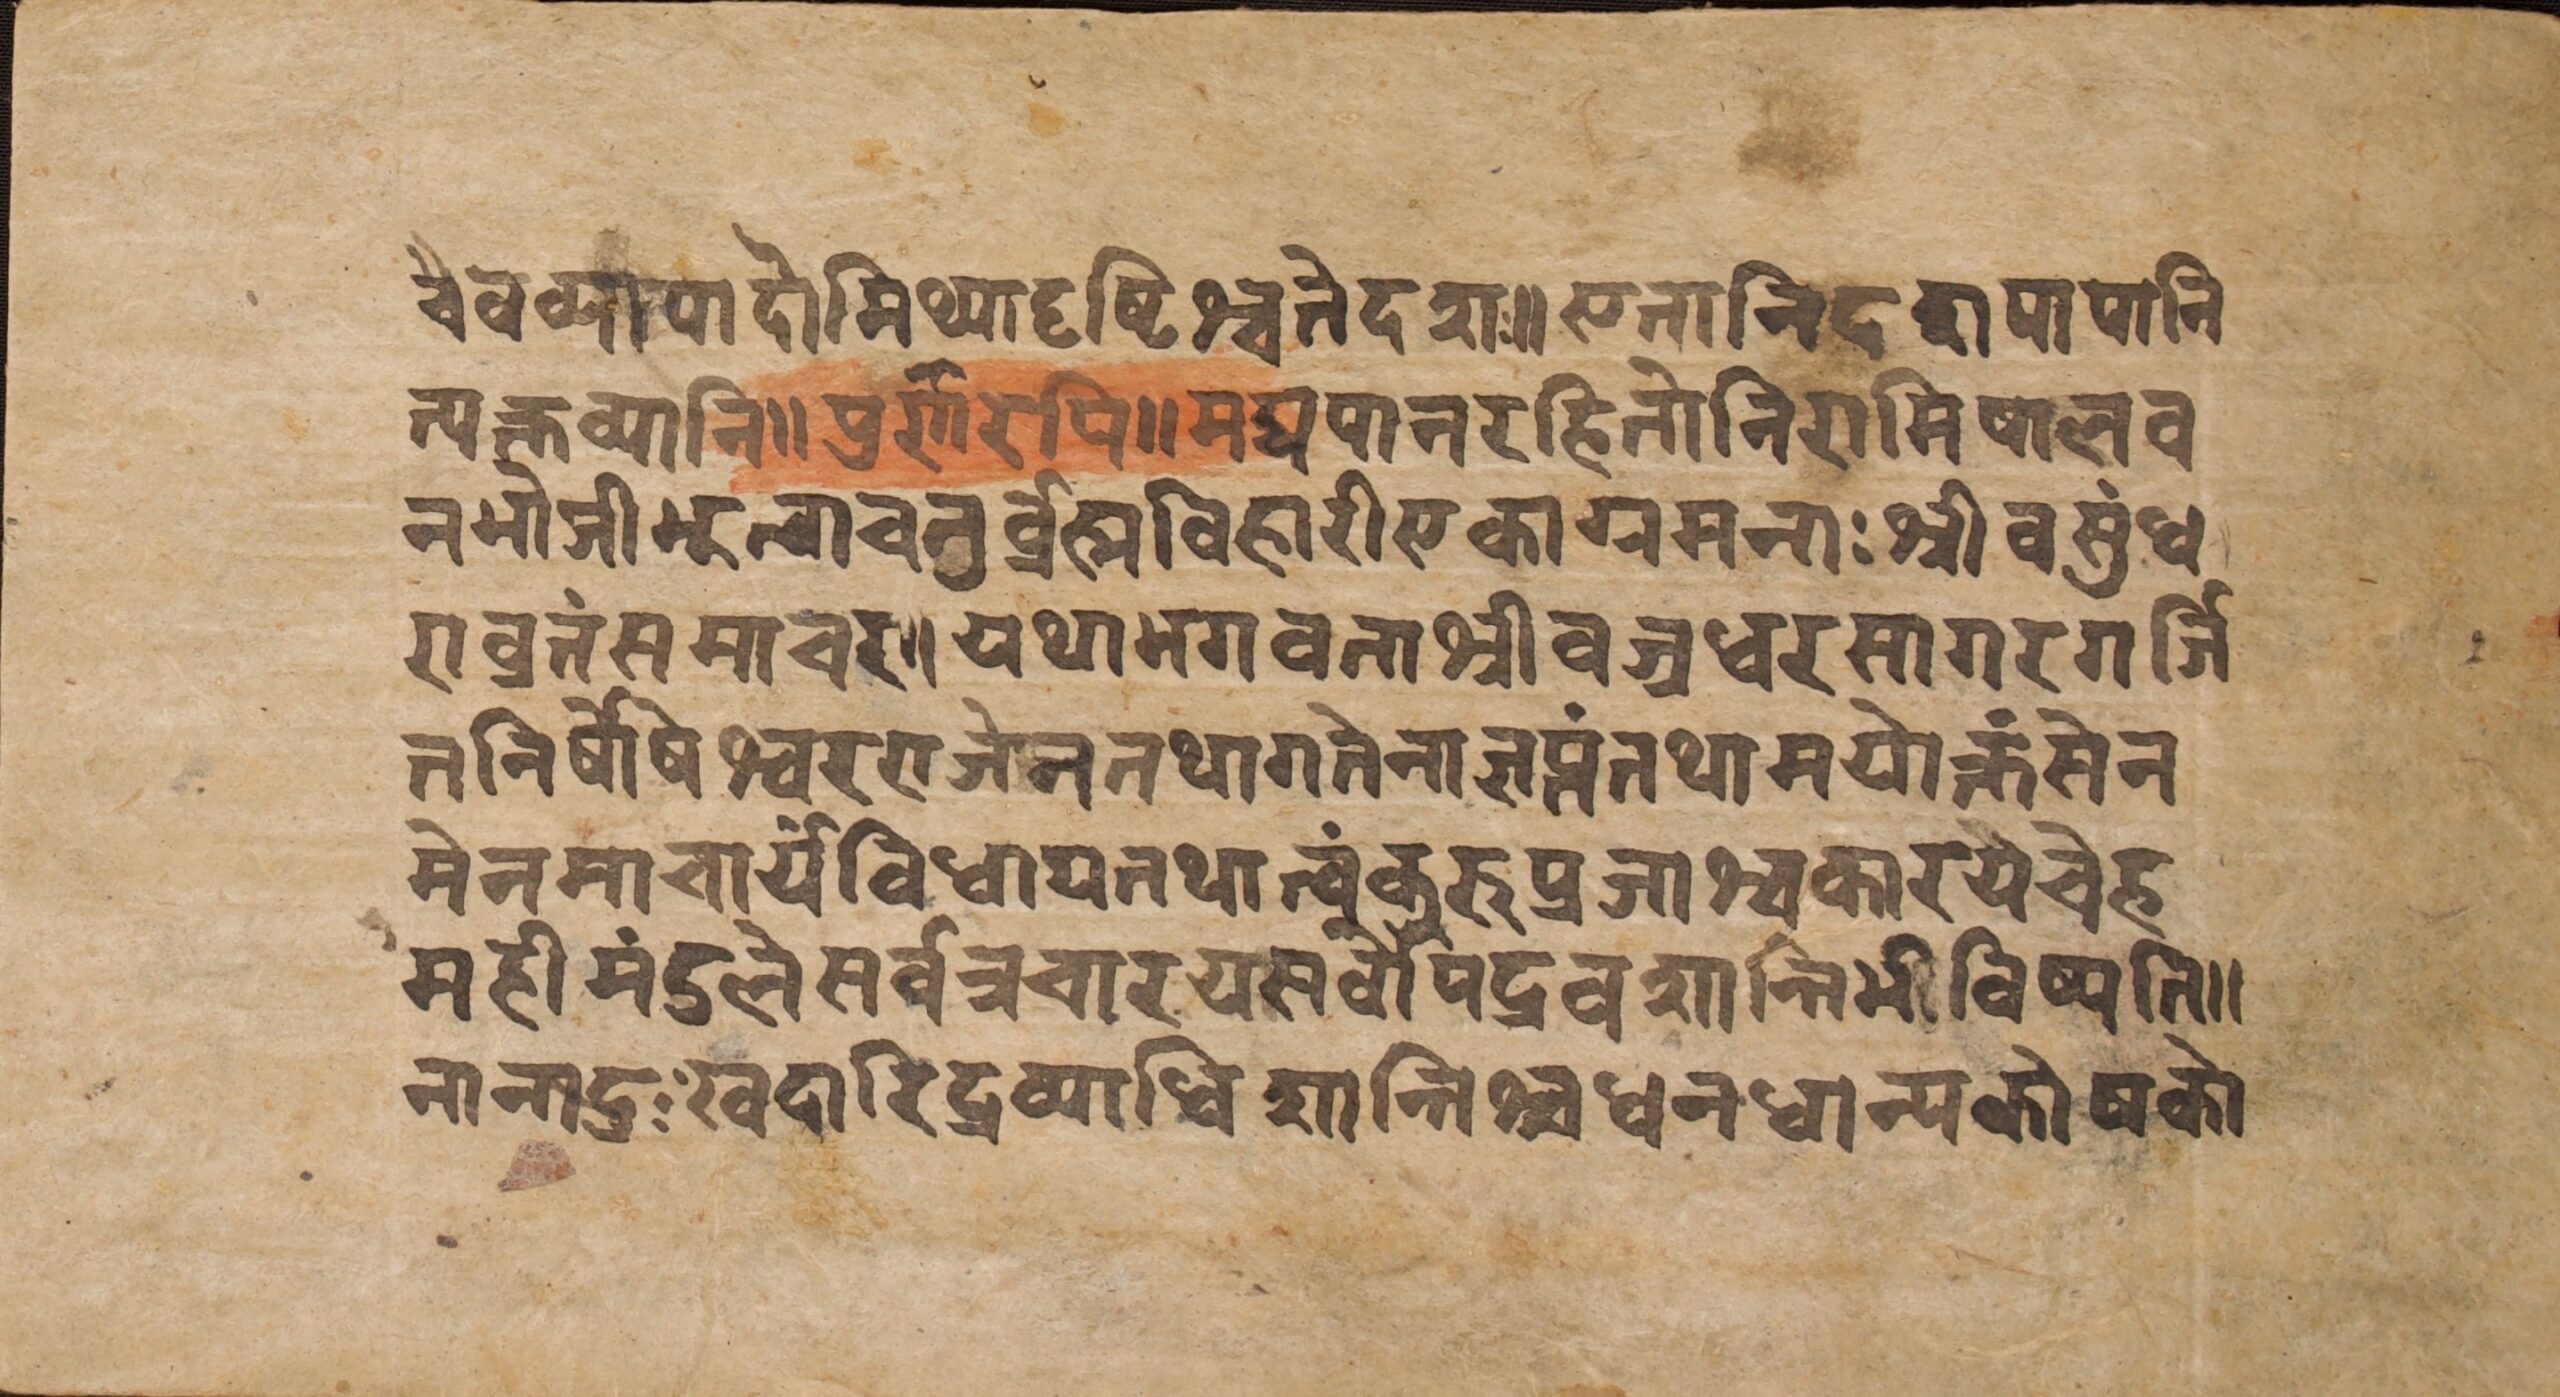 चैवव्यापादोमिथ्यादृष्टिश्चतेदशः॥एतानिदशपापानि
त्यक्तव्यानि॥पुर्णरपि॥मद्यपानरहितोनिरामिषालव
नभोजीभूत्वाचतुर्व्रह्मविहारीएकाग्रमनाःश्रीवसुंध
राव्रतंसमाचर॥यथाभगवताश्रीवज्रधरसागरगर्जि
तनिर्घोषेश्वरराजेनतथागतेनाज्ञप्तंतथामयोक्तंसेन
मेनमाचार्यंविधायतथात्वंकुरुप्रजाश्चकारयेचेह
महीमंडलेसर्वत्रचारयसर्वोपद्रवशान्तिर्भविष्यति॥
नानादुःखदारिद्रव्याधिशान्तिश्चधनधान्यकोषको